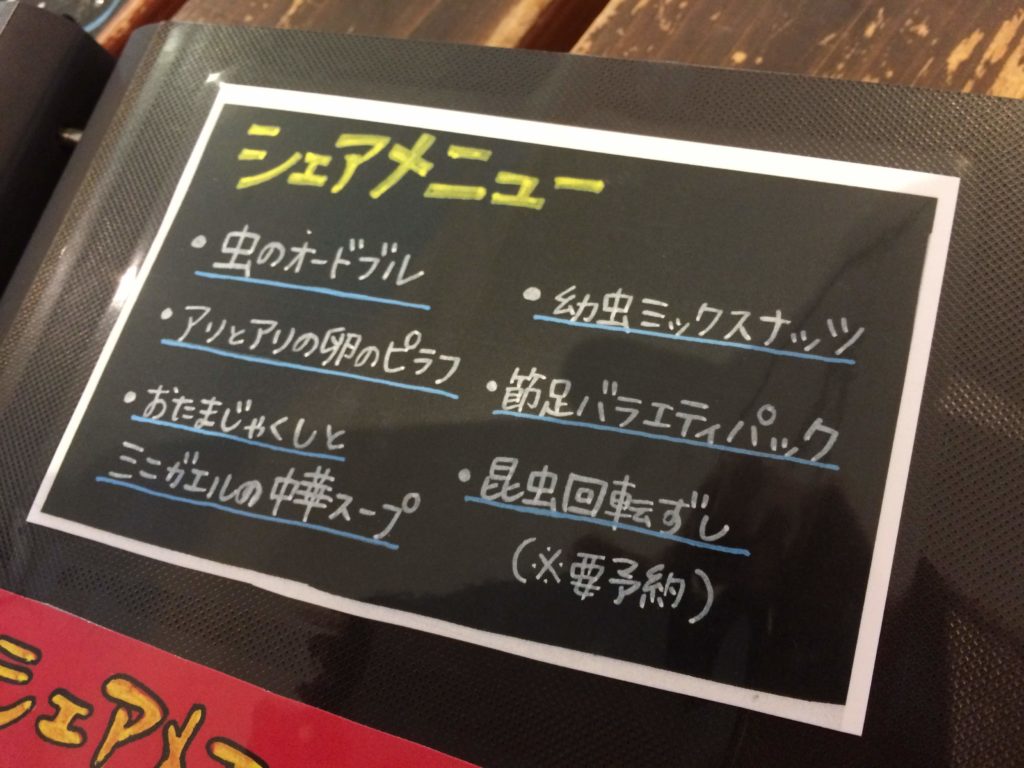 シェアメニュー
・虫のオードブル
・アリとアリの卵のピラフ
・おたまじゃくしと
ミニガエルの中華スープ
・幼虫ミックスナッツ
・節足バラエティパック
・昆虫回転ずし
(※要予約)
シェアメニ